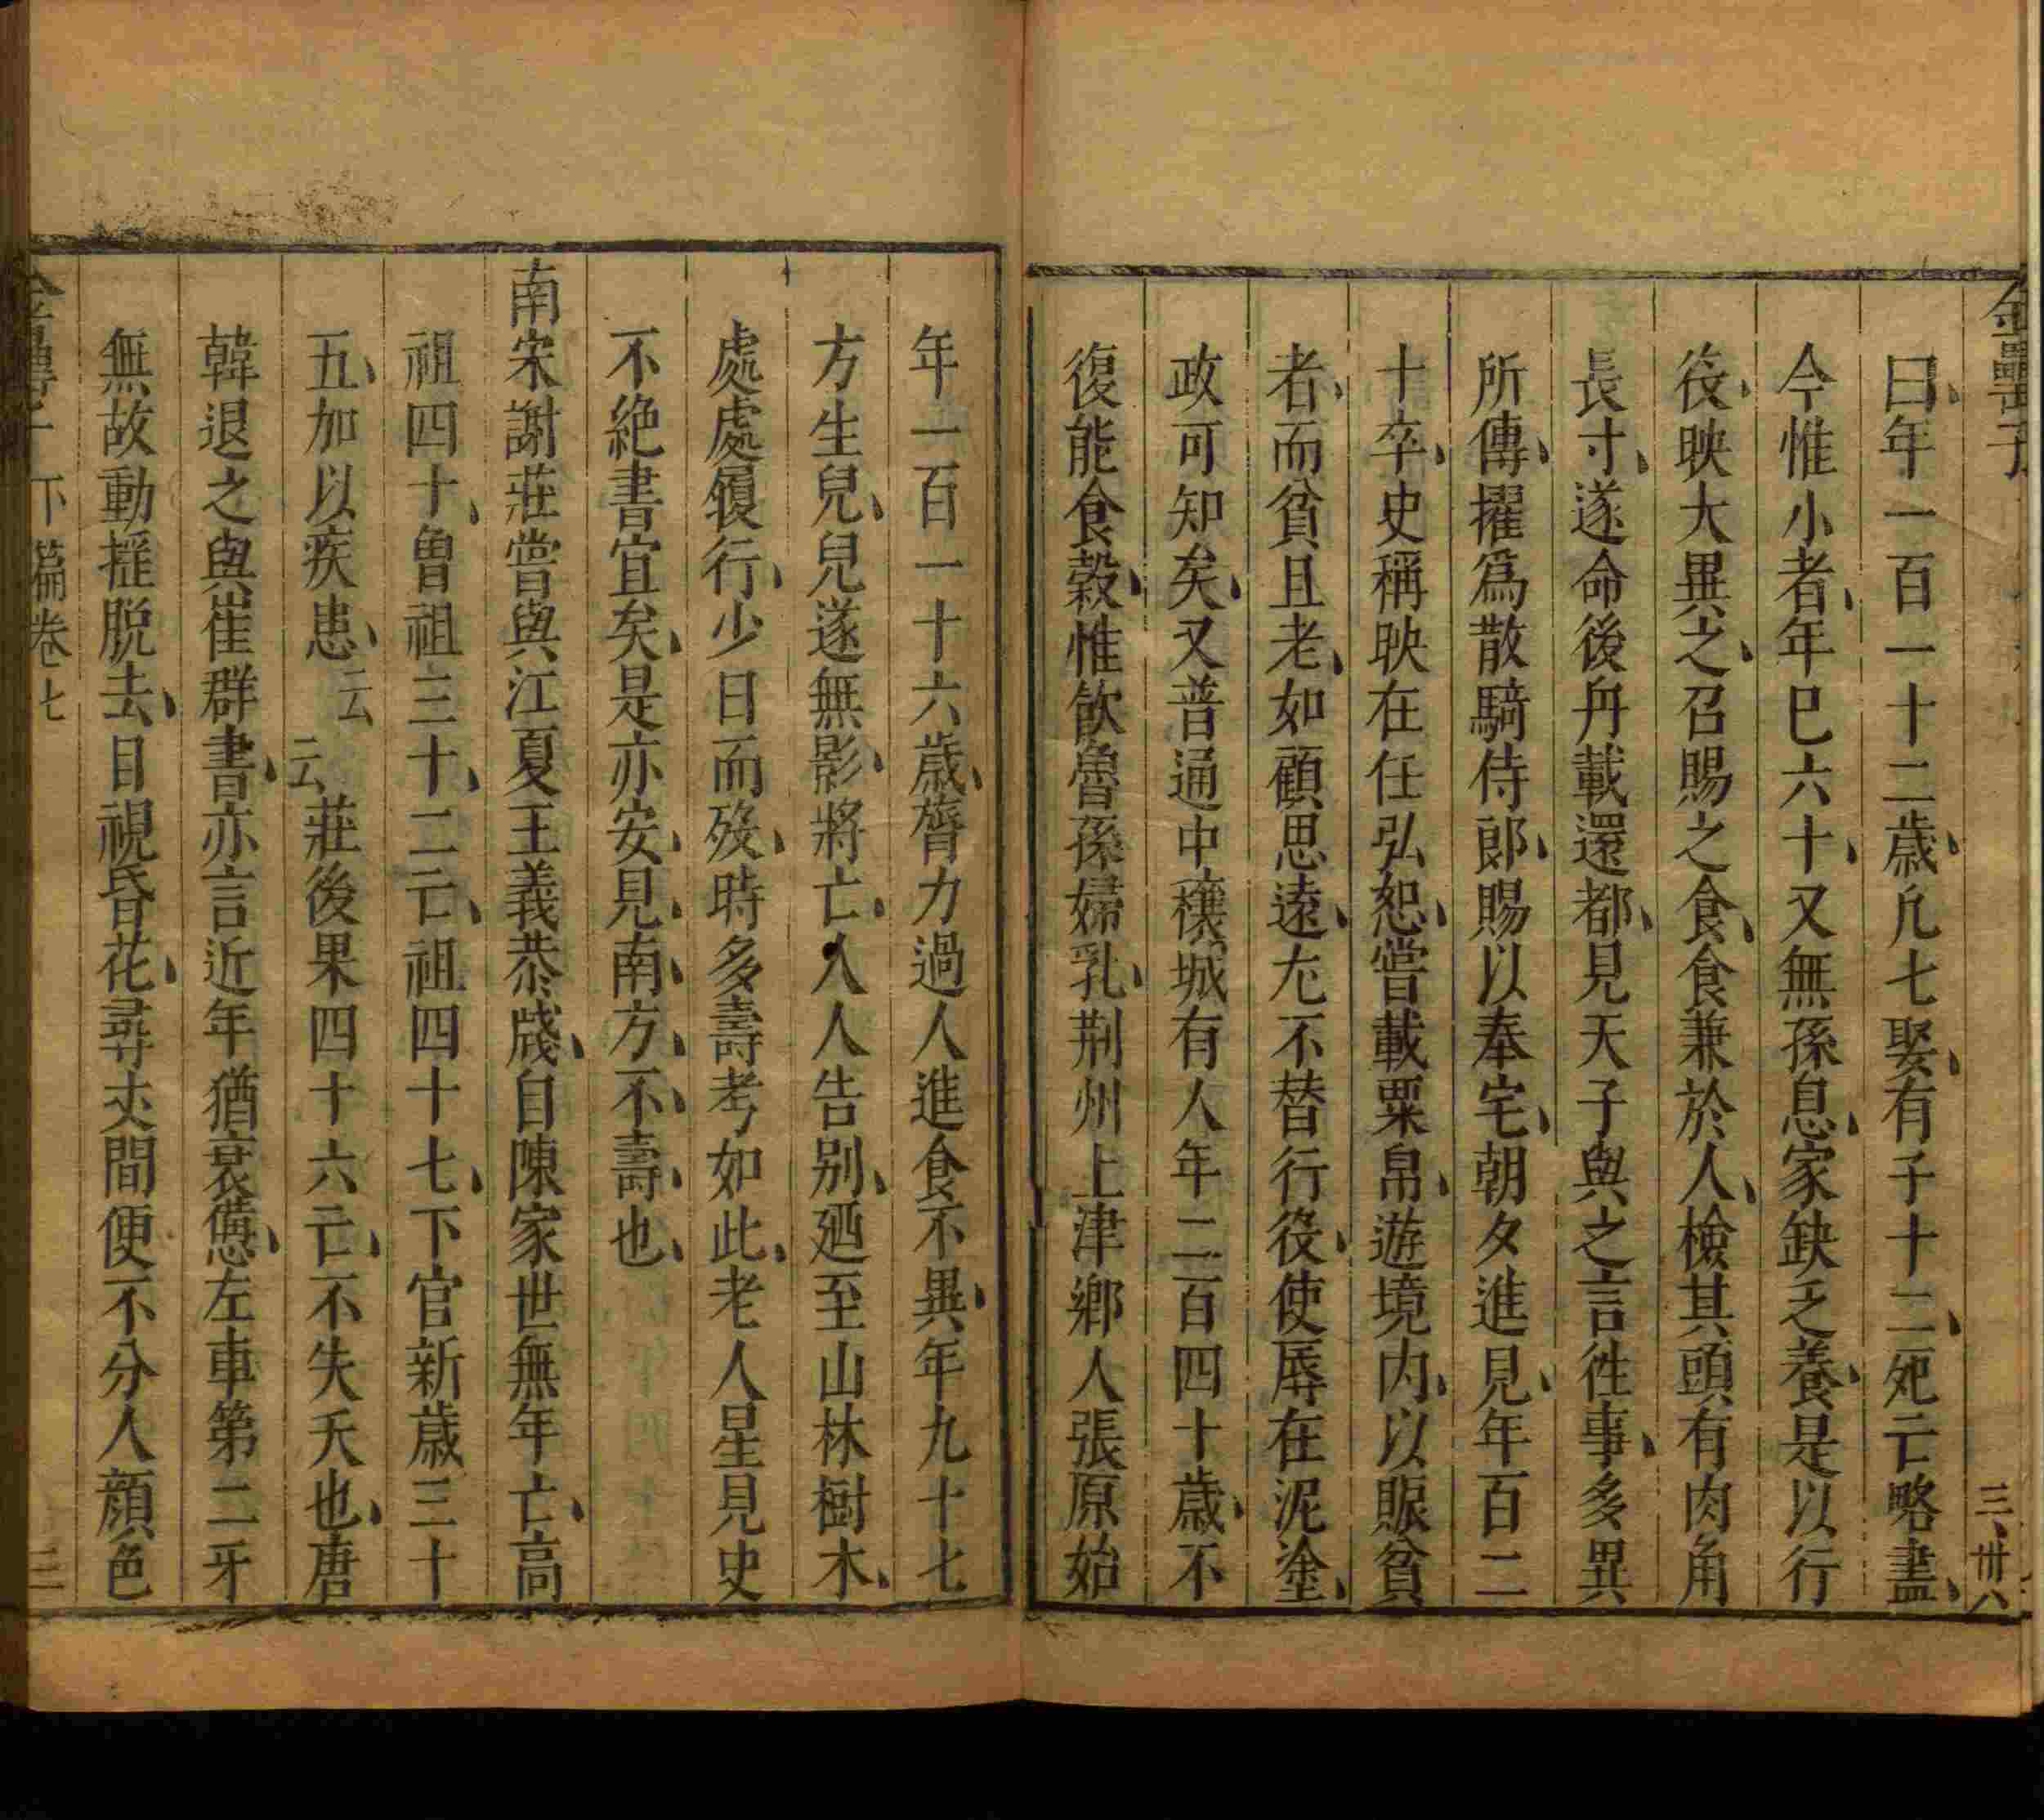 金罍子
三、卅八
曰、年一百一十二歲、凡七娶、有子十二、死亡略盡、
今惟小者、年巳六十、又無孫息、家缺乏養、是以行
役、映大異之、召賜之食、食兼於人、檢其頭有肉角
長寸、遂命後舟載還都、見天子與之言徃事、多異
所傳、擢爲散騎侍郎、賜以奉宅、朝夕進見、年百二
十卒、史稱映在任弘恕、嘗載粟帛、遊境内、以賑貧
者、而貧且老、如顧思遠、尢不替行役、使辱在泥塗、
政可知矣、又普通中穰城有人年二百四十歲、不
復能食穀、惟飮曾孫婦乳、荆州上津鄉人張原始
年一百一十六歲、膂力過人進食不異、年九十七
方生兒、兒遂無影、將亡、人人告别、廼至山林樹木、
處處履行、少日而歿、時多壽考如此、老人星見史
不絶書宜矣、是亦安、見、南、方、不、壽、也、
南宋謝莊嘗與江夏王義恭牋、自陳家世無年亡、高
祖四十、曾祖三十、二亡、祖四十七、下官新歲三十
五、加以疾患、云云莊後果四十六亡、不失夭也、唐
韓退之與崔群書、亦言近年猶衰憊、左車第二牙
無故動搖脱去、目視昏花、尋丈間便不分人顔色
金罍子 下篇卷七
三